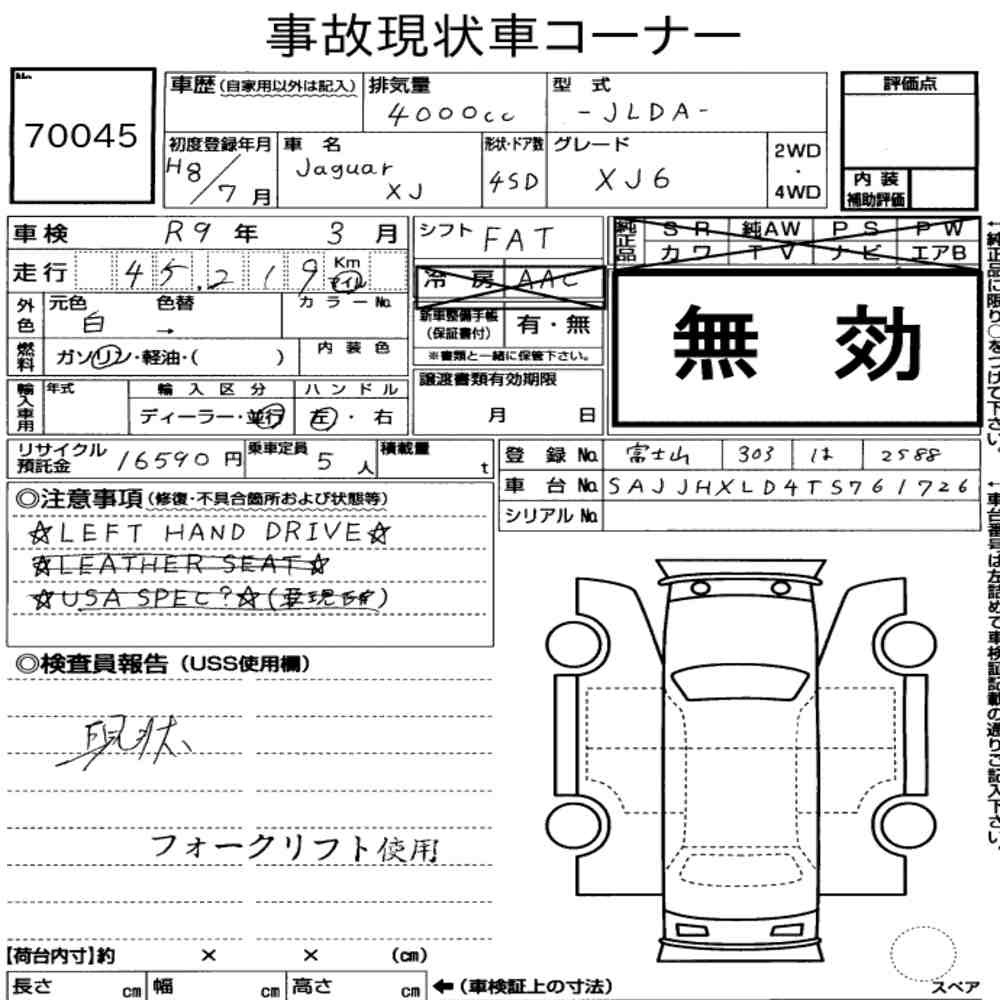 事故現状車コーナー
No.
70045
車歴(自家用以外は記入) 排気量 型式 評価点
4000cc -JLDA-
初度登録年月 車名 形状・ドア数 グレード 2WD・4WD
H8/7月 Jaguar XJ 4SD XJ6
内装補助評価
車検 R9年 3月
シフト FAT
純正品 SR 純AW PS PW
カワ TV ナビ エアB
走行 45,219 Km マイル
冷房 AAC
外色 元色 色替 カラーNo.
白 →
新車整備手帳(保証書付) 有・無
※書類と一緒に保管下さい。
無効
燃料 ガソリン・軽油・( ) 内装色
譲渡書類有効期限
月 日
輸入車用 年式 輸入区分 ハンドル
ディーラー・並行 左・右
リサイクル預託金 16590円 乗車定員 5人 積載量 t
登録No. 富士山 303 は 2588
車台No. SAJJHXLD4TS761726
シリアルNo.
◎注意事項(修復・不具合箇所および状態等)
☆LEFT HAND DRIVE☆
☆LEATHER SEAT☆
☆USA SPEC?☆(要現確)
◎検査員報告(USS使用欄)
現状、
フォークリフト使用
【荷台内寸】約 × × (cm)
長さ cm 幅 cm 高さ cm ←(車検証上の寸法)
スペア
←純正品に限り○をつけて下さい。
←車台番号は左詰めで車検証記載の通りご記入下さい。